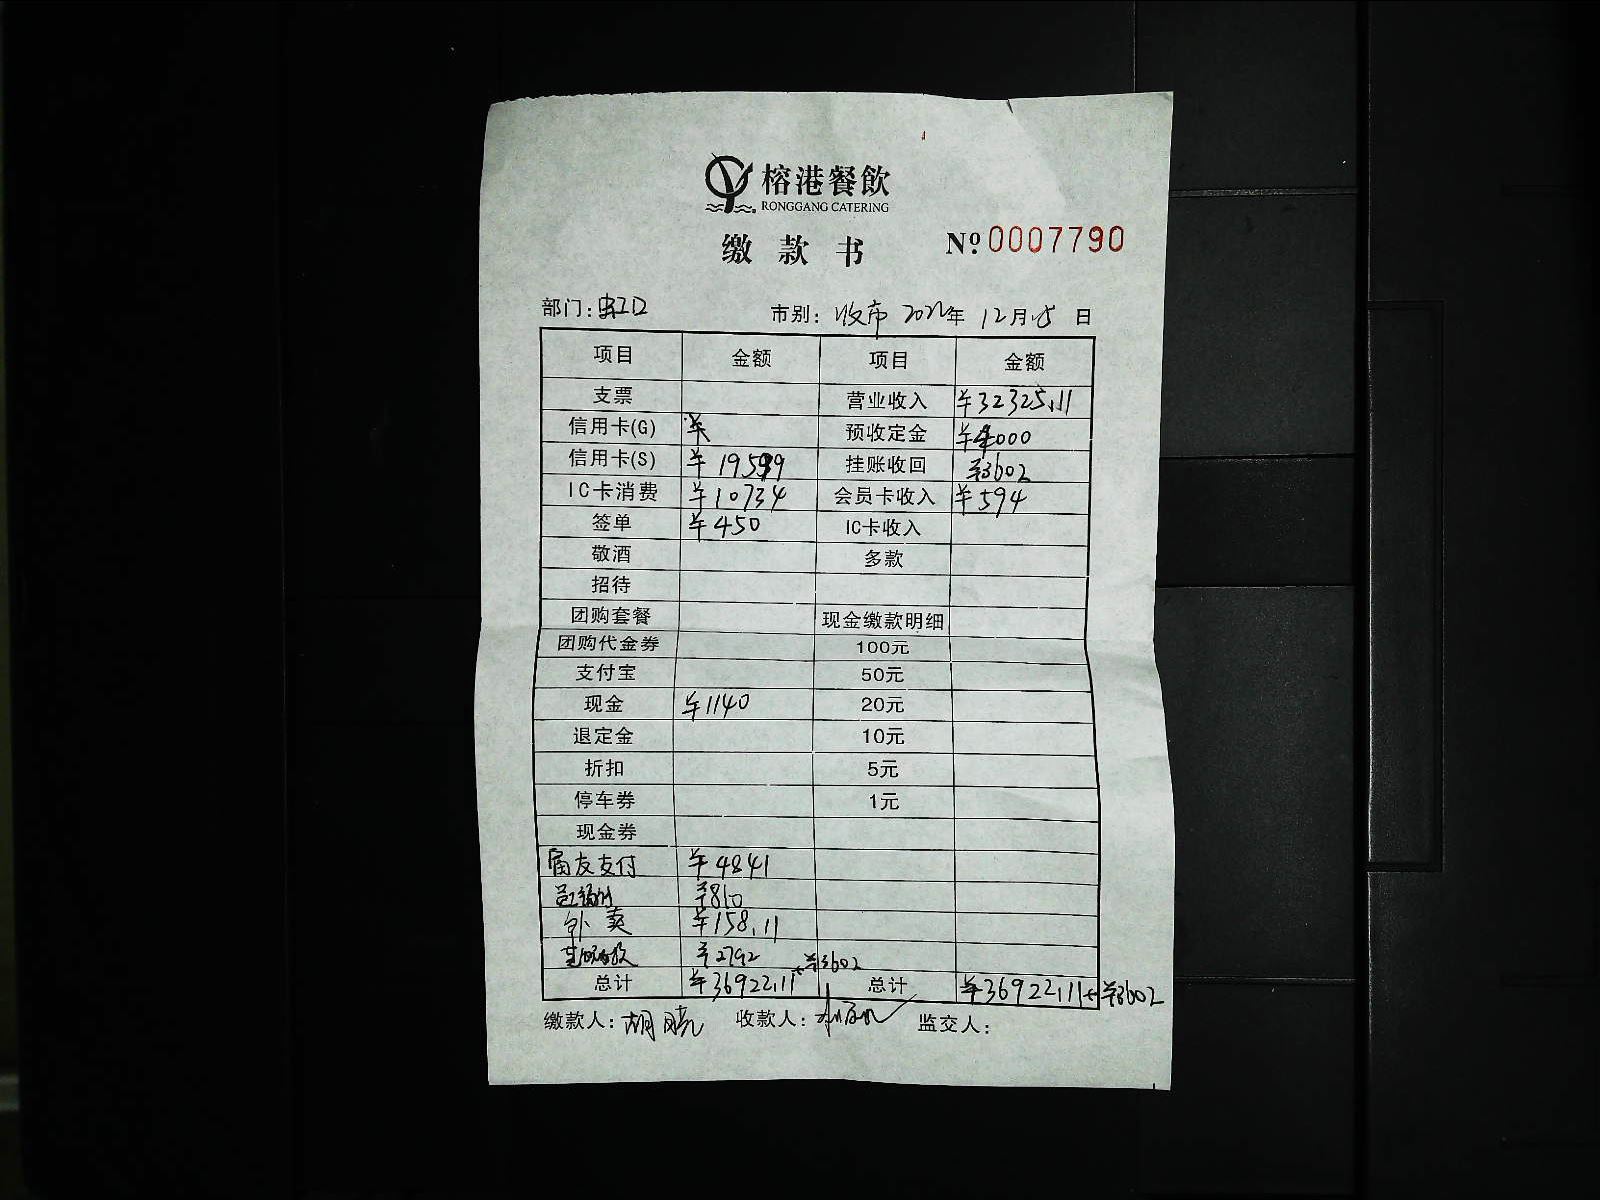 榕港餐飲
RONGGANG CATERING
缴款书 Nº 0007790
部门：虹口 市别：收市 2022年 12月 日
项目 金额 项目 金额
支票 营业收入 ¥32325.11
信用卡(G) ¥ 预收定金 ¥4000
信用卡(S) ¥19599 挂账收回 ¥3602
IC卡消费 ¥10734 会员卡收入 ¥594
签单 ¥450 IC卡收入
敬酒 多款
招待
团购套餐 现金缴款明细
团购代金券 100元
支付宝 50元
现金 ¥1140 20元
退定金 10元
折扣 5元
停车券 1元
现金券
支付 ¥4841
¥810
外卖 ¥158.11
¥2792
总计 ¥36922.11+¥3602 总计 ¥36922.11+¥3602
缴款人：胡晓 收款人： 监交人：